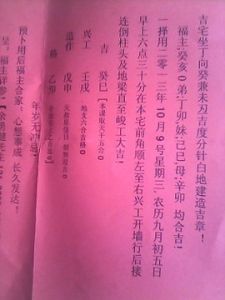 吉宅坐丁向癸兼未丑吉度分针白地建造吉章!
福主:癸亥0弟:丁卯:妹:己巳母:辛卯 均合吉!
一择用二零一三年10月9号星期三,农历九月初五日
早上六点三十分在本宅前角顺左至右兴工开墙行后接
连倒柱头及地梁直到峻工大吉!
吉 癸巳 【本课取天干五合0
兴工 壬戌 地支六合吉格0
造作 戊申
格 乙卯
年岁无冲忌!
预卜用后福主合家,心想事成 长久发达!
呈。福主详参